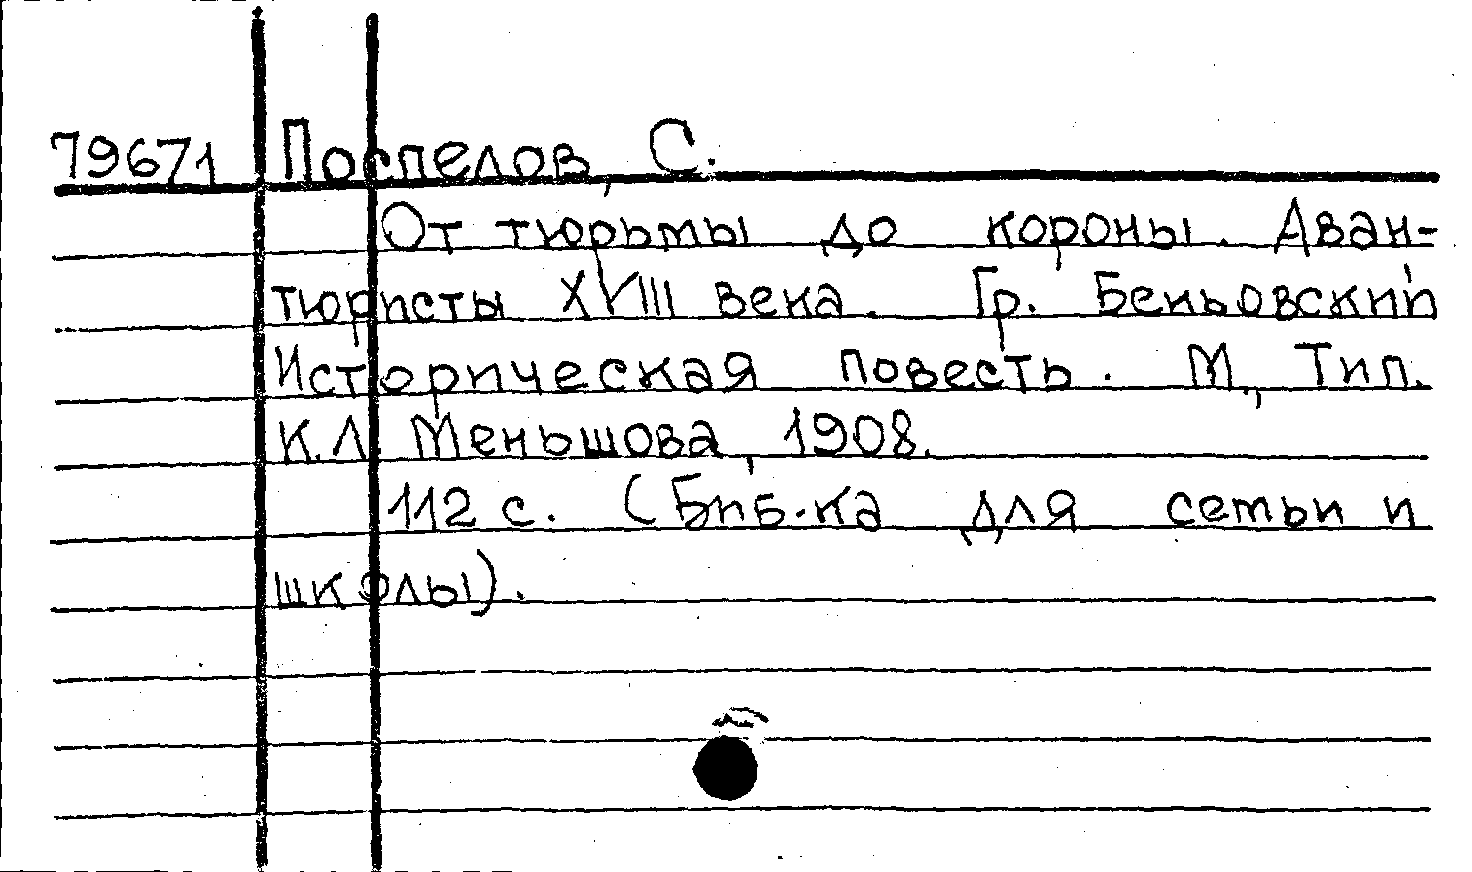 79671 Поспелов, С.
От тюрьмы до короны. Аван-
тюристы XVIII века. Гр. Беньовский
Историческая повесть. М., Тип.
К.Л. Меньшова, 1908.
112 с. (Биб-ка для сетьи и
школы).